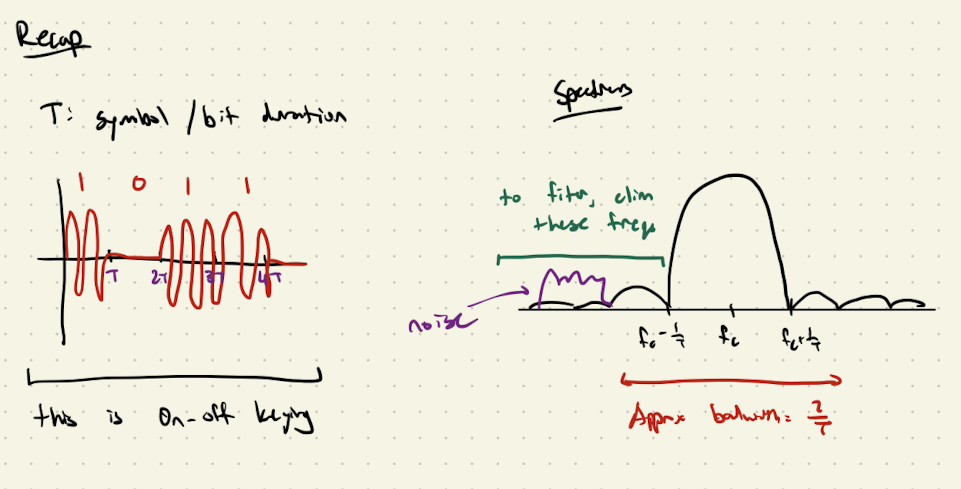 Recap
T: symbol / bit duration
1 0 1 1
T 2T 3T 4T
this is On-off keying
Spectrum
to filter, elim
these freqs
noise
fc - 1/T fc fc + 1/T
Approx = 2/T